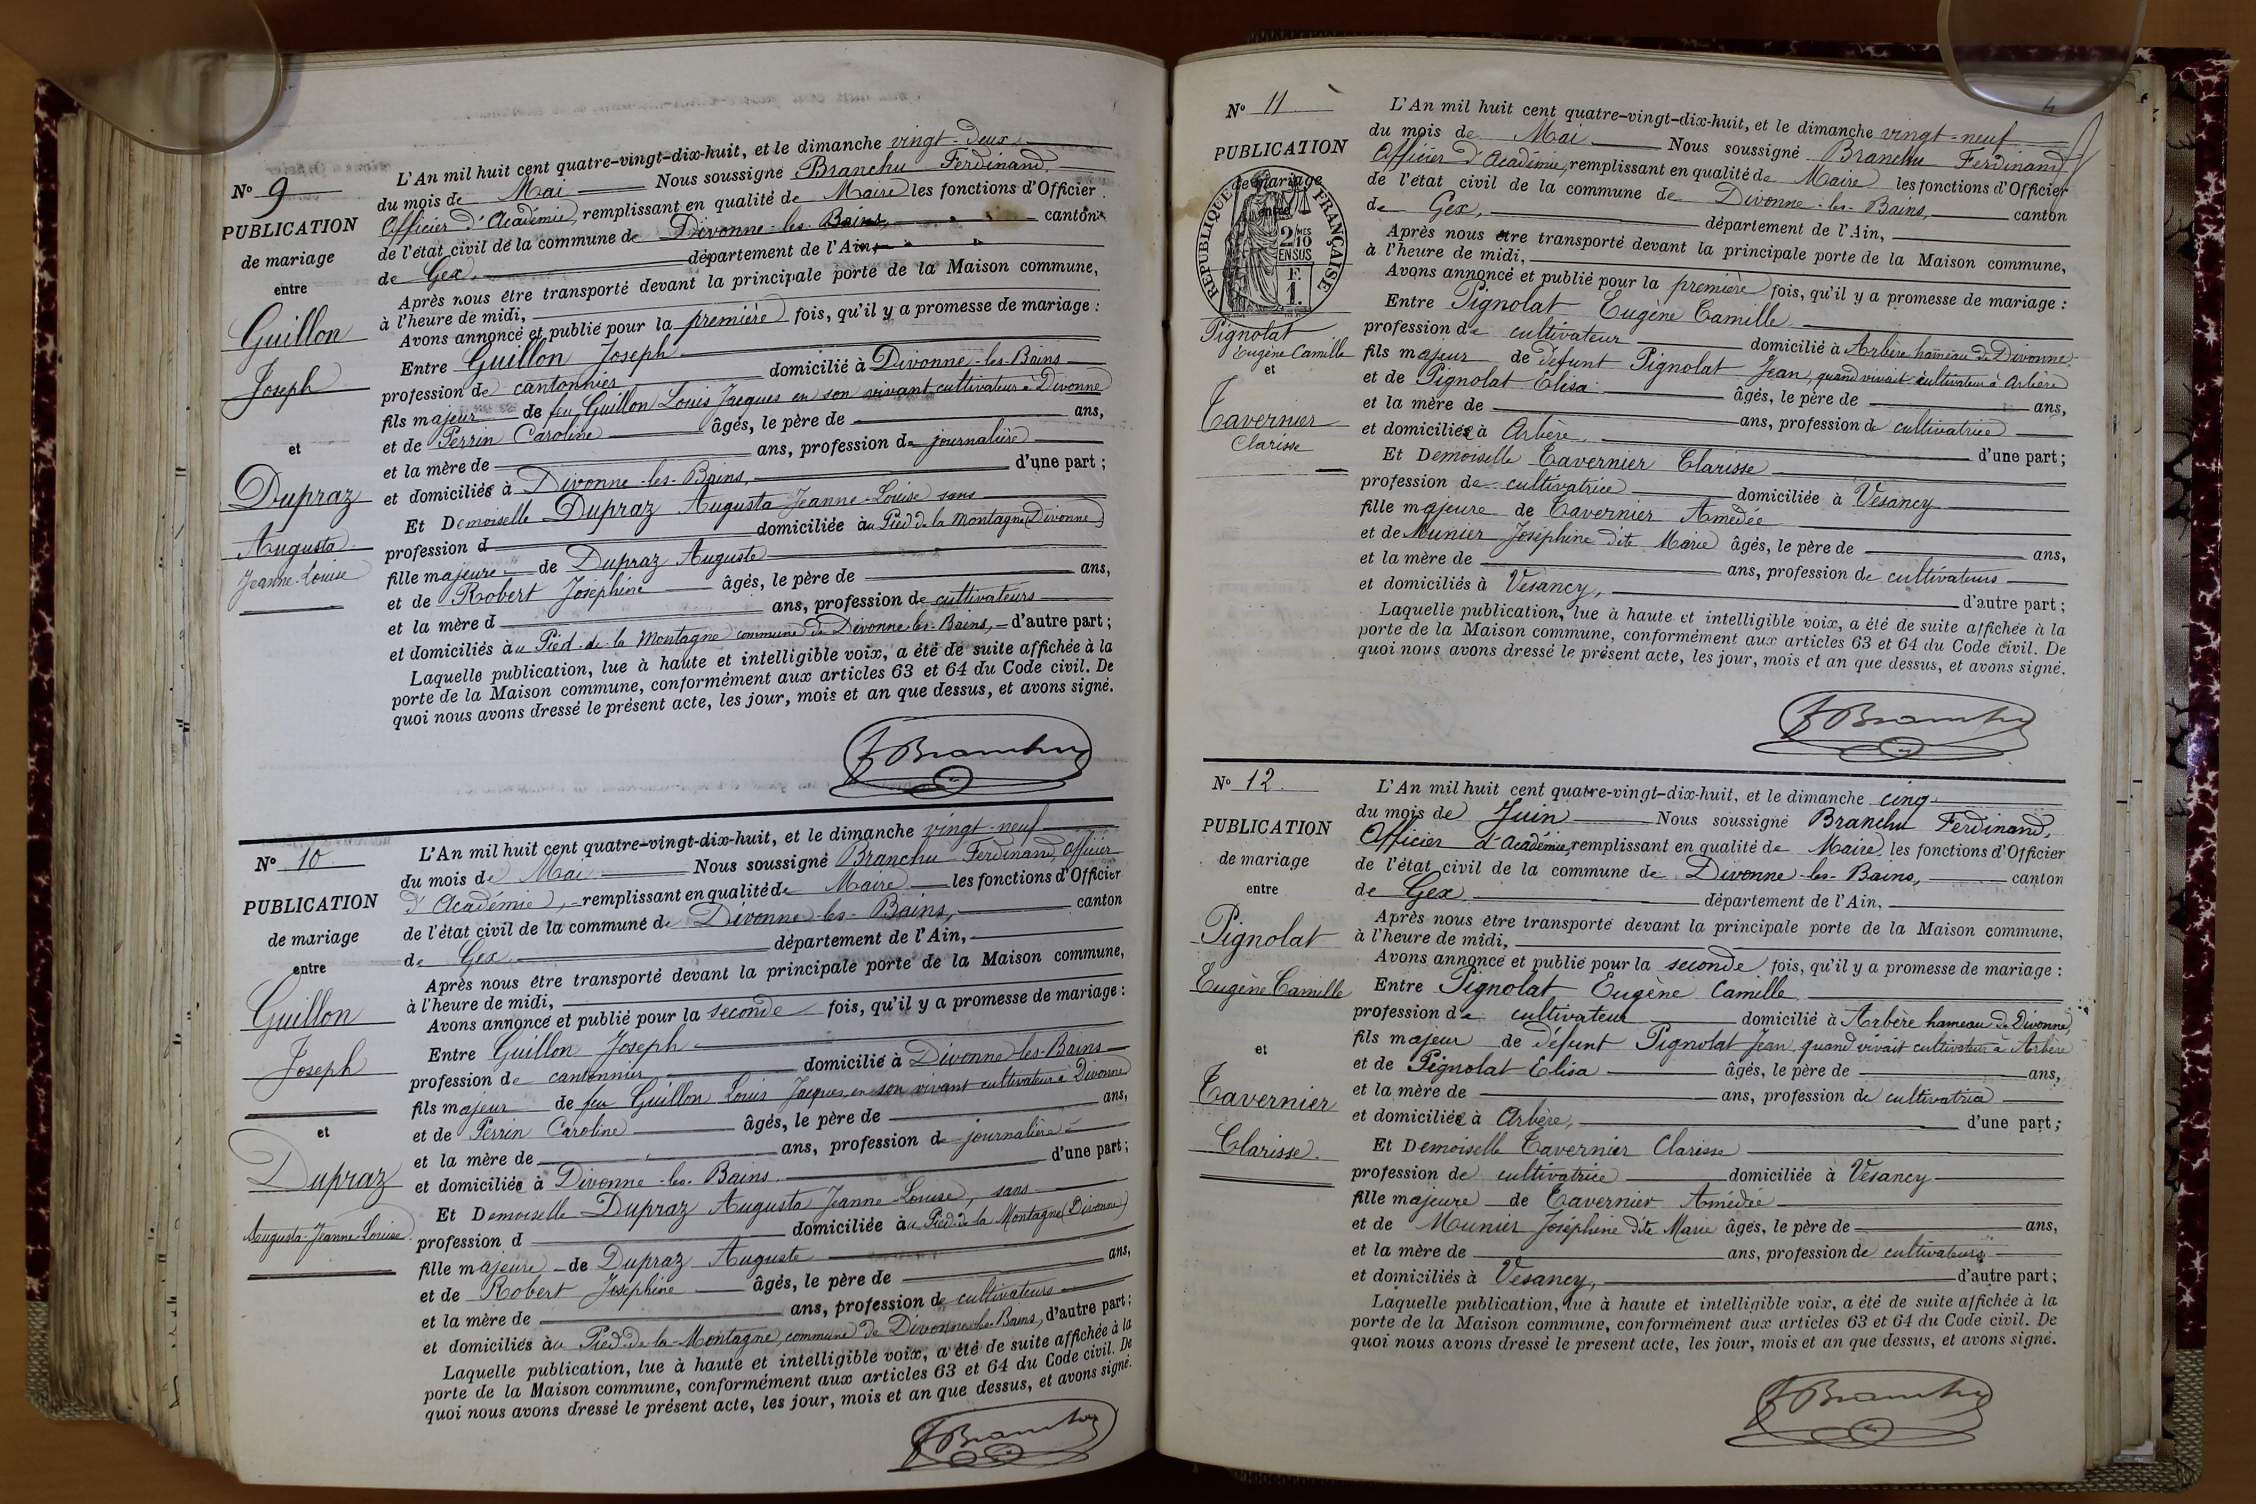 Nº 9
PUBLICATION
de mariage
entre
Guillon
Joseph
et
Dupraz
Augusta
Jeanne-Louise
L'An mil huit cent quatre-vingt-dix-huit, et le dimanche vingt-deux
du mois de Mai Nous soussigné Branchu Ferdinand,
Officier d'Académie, remplissant en qualité de Maire les fonctions d'Officier
de l'état civil de la commune de Divonne-les-Bains, canton
de Gex, département de l'Ain,
Après nous être transporté devant la principale porte de la Maison commune,
à l'heure de midi,
Avons annoncé et publié pour la première fois, qu'il y a promesse de mariage :
Entre Guillon Joseph
profession de cantonnier domicilié à Divonne-les-Bains
fils majeur de feu Guillon Louis Jacques en son vivant cultivateur à Divonne
et de Perrin Caroline âgés, le père de ans,
et la mère de ans, profession de journalière
et domiciliés à Divonne-les-Bains, d'une part ;
Et Demoiselle Dupraz Augusta Jeanne-Louise sans
profession d domiciliée au Pied de la Montagne (Divonne)
fille majeure de Dupraz Auguste
et de Robert Joséphine âgés, le père de ans,
et la mère d ans, profession de cultivateurs
et domiciliés au Pied-de-la Montagne commune de Divonne-les-Bains, d'autre part ;
Laquelle publication, lue à haute et intelligible voix, a été de suite affichée à la
porte de la Maison commune, conformément aux articles 63 et 64 du Code civil. De
quoi nous avons dressé le présent acte, les jour, mois et an que dessus, et avons signé.
F Branchu
Nº 10
PUBLICATION
de mariage
entre
Guillon
Joseph
et
Dupraz
Augusta-Jeanne-Louise
L'An mil huit cent quatre-vingt-dix-huit, et le dimanche vingt-neuf
du mois de Mai Nous soussigné Branchu Ferdinand, Officier
d'Académie, remplissant en qualité de Maire les fonctions d'Officier
de l'état civil de la commune de Divonne-les-Bains, canton
de Gex département de l'Ain,
Après nous être transporté devant la principale porte de la Maison commune,
à l'heure de midi,
Avons annoncé et publié pour la seconde fois, qu'il y a promesse de mariage :
Entre Guillon Joseph
profession de cantonnier domicilié à Divonne-les-Bains
fils majeur de feu Guillon Louis Jacques en son vivant cultivateur à Divonne
et de Perrin Caroline âgés, le père de ans,
et la mère de ans, profession de journalière
et domiciliés à Divonne-les-Bains d'une part ;
Et Demoiselle Dupraz Augusta Jeanne-Louise, sans
profession d domiciliée au Pied de la Montagne (Divonne)
fille majeure de Dupraz Auguste
et de Robert Joséphine âgés, le père de ans,
et la mère de ans, profession de cultivateurs
et domiciliés au Pied-de-la-Montagne, commune de Divonne-les-Bains, d'autre part ;
Laquelle publication, lue à haute et intelligible voix, a été de suite affichée à la
porte de la Maison commune, conformément aux articles 63 et 64 du Code civil. De
quoi nous avons dressé le présent acte, les jour, mois et an que dessus, et avons signé.
F Branchu
4
Nº 11
PUBLICATION
de mariage
entre
RÉPUBLIQUE FRANÇAISE
2/10 MES
EN SUS
F.
1.
Pignolat
Eugène Camille
et
Tavernier
Clarisse
L'An mil huit cent quatre-vingt-dix-huit, et le dimanche vingt-neuf
du mois de Mai Nous soussigné Branchu Ferdinand
Officier d'Académie, remplissant en qualité de Maire les fonctions d'Officier
de l'état civil de la commune de Divonne-les-Bains, canton
de Gex, département de l'Ain,
Après nous être transporté devant la principale porte de la Maison commune,
à l'heure de midi,
Avons annoncé et publié pour la première fois, qu'il y a promesse de mariage :
Entre Pignolat Eugène Camille
profession de cultivateur domicilié à Arbère hameau de Divonne
fils majeur de défunt Pignolat Jean, quand vivait cultivateur à Arbère
et de Pignolat Elisa âgés, le père de ans,
et la mère de ans, profession de cultivatrice
et domiciliés à Arbère, d'une part ;
Et Demoiselle Tavernier Clarisse
profession de cultivatrice domiciliée à Vesancy
fille majeure de Tavernier Amédée
et de Munier Joséphine dite Marie âgés, le père de ans,
et la mère de ans, profession de cultivateurs
et domiciliés à Vesancy, d'autre part ;
Laquelle publication, lue à haute et intelligible voix, a été de suite affichée à la
porte de la Maison commune, conformément aux articles 63 et 64 du Code civil. De
quoi nous avons dressé le présent acte, les jour, mois et an que dessus, et avons signé.
F Branchu
Nº 12
PUBLICATION
de mariage
entre
Pignolat
Eugène Camille
et
Tavernier
Clarisse.
L'An mil huit cent quatre-vingt-dix-huit, et le dimanche cinq
du mois de Juin Nous soussigné Branchu Ferdinand,
Officier d'Académie, remplissant en qualité de Maire les fonctions d'Officier
de l'état civil de la commune de Divonne-les-Bains, canton
de Gex département de l'Ain,
Après nous être transporté devant la principale porte de la Maison commune,
à l'heure de midi,
Avons annoncé et publié pour la seconde fois, qu'il y a promesse de mariage :
Entre Pignolat Eugène Camille
profession de cultivateur domicilié à Arbère hameau de Divonne
fils majeur de défunt Pignolat Jean quand vivait cultivateur à Arbère
et de Pignolat Elisa âgés, le père de ans,
et la mère de ans, profession de cultivatrice
et domiciliés à Arbère, d'une part ;
Et Demoiselle Tavernier Clarisse
profession de cultivatrice domiciliée à Vesancy
fille majeure de Tavernier Amédée
et de Munier Joséphine dite Marie âgés, le père de ans,
et la mère de ans, profession de cultivateurs
et domiciliés à Vesancy, d'autre part ;
Laquelle publication, lue à haute et intelligible voix, a été de suite affichée à la
porte de la Maison commune, conformément aux articles 63 et 64 du Code civil. De
quoi nous avons dressé le présent acte, les jour, mois et an que dessus, et avons signé.
F Branchu